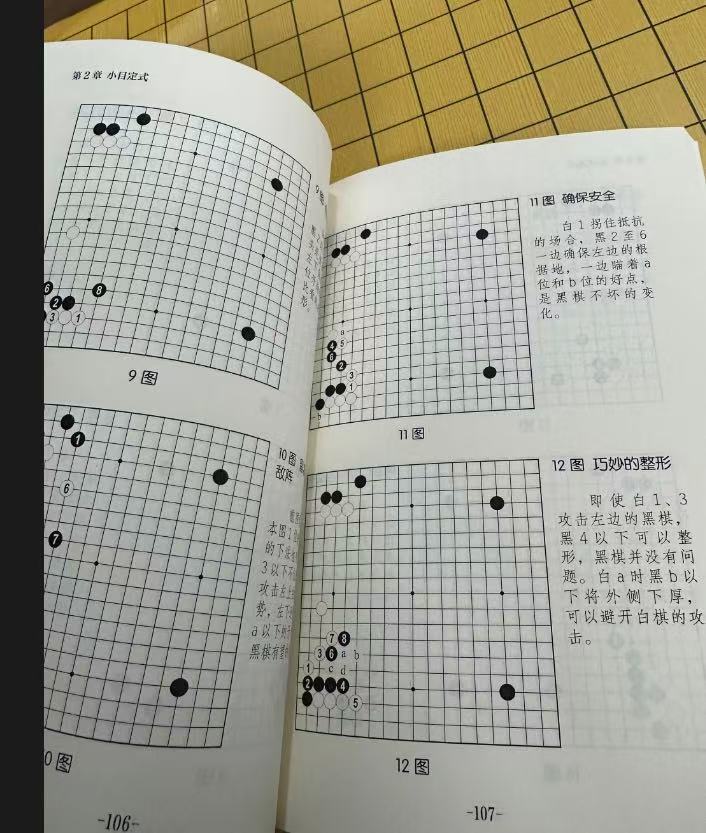 第2章 小目定式
9图
6
2
8
3
1
9图
1
6
7
10图
敌阵
本图1
的下
3以下
攻击左上
势,左下
a以下的
黑棋有望
0图
-106-
11图 确保安全
白1拐住抵抗
的场合,黑2至6
一边确保左边的根
据地,一边瞄着a
位和b位的好点,
是黑棋不坏的变
化。
a
4
5
6
2
3
1
b
11图
12图 巧妙的整形
即使白1、3
攻击左边的黑棋,
黑4以下可以整
形,黑棋并没有问
题。白a时黑b以
下将外侧下厚,
可以避开白棋的攻
击。
7 8
3 6 a b
1 c d
2 4
5
12图
-107-